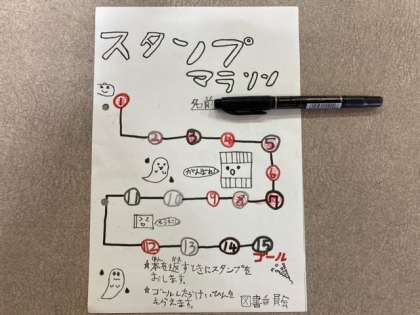 スタンプ
マラソン
名前
1
2 3 4 5
がんばれ
6
11 10 9 8 7
12 13 14 15
ゴール
★本を返すときにスタンプを
おします。
★ゴールしたらけいひんを
もらえます。
図書委員会